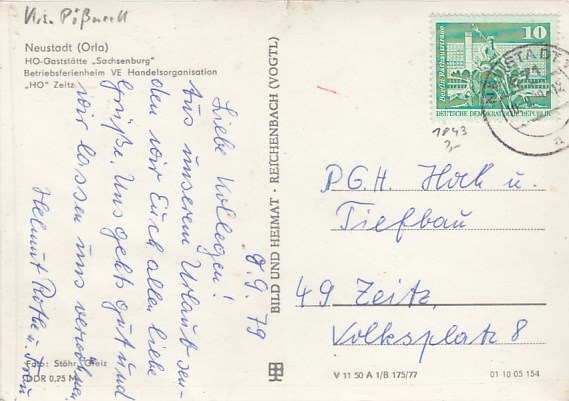 Neustadt (Orla)
HO-Gaststätte „Sachsenburg"
Betriebsferienheim VE Handelsorganisation
„HO" Zeitz
8.9.79
Liebe Kollegen!
Aus unserem Urlaub sen-
den wir Euch allen liebe
Grüße. Uns geht's gut und
wir lassen uns verwöhnen
Helmut Rothe u. Frau
Foto: Stöhr, Greiz
DDR 0,25 M
BILD UND HEIMAT · REICHENBACH (VOGTL)
10
Berlin, Rathausstraße
DEUTSCHE DEMOKRATISCHE REPUBLIK
NEUSTADT
1843
3,-
P.G.H. Hoch u.
Tiefbau
49 Zeitz
Volksplatz 8
V 11 50 A 1/B 175/77
01 10 05 154